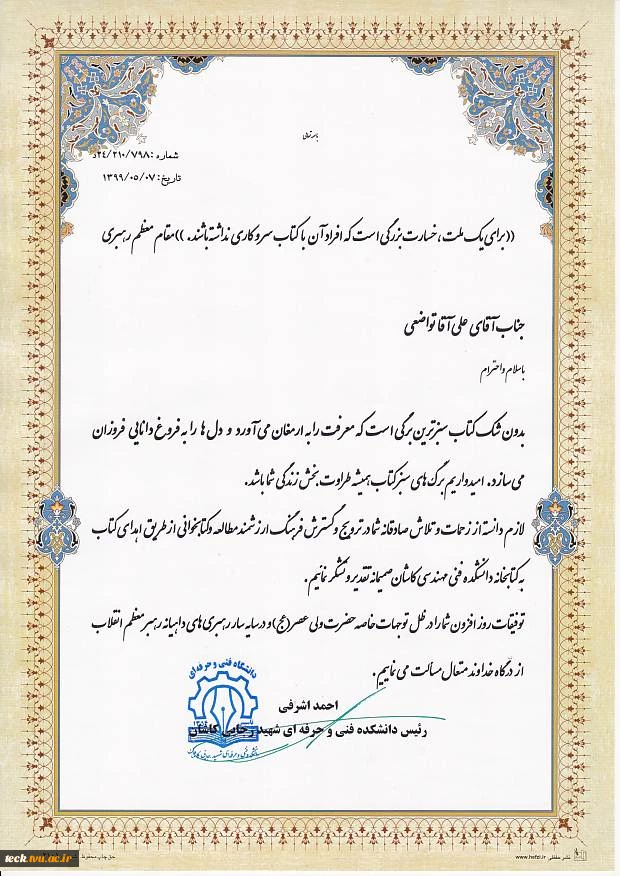 باسمه تعالی
شماره : ۲۴/۲۱۰/۷۹۸د
تاریخ: ۱۳۹۹/۰۵/۰۷
((برای یک ملت، خسارت بزرگی است که افراد آن با کتاب سر و کاری نداشته باشند. ))مقام معظم رهبری
جناب آقای علی آقا تواضعی
با سلام و احترام
بدون شک کتاب سبزترین برگی است که معرفت را به ارمغان می آورد و دل ها را به فروغ دانایی فروزان
می سازد. امیدواریم برگ های سبز کتاب همیشه طراوت بخش زندگی شما باشد.
لازم دانسته از زحمات و تلاش صادقانه شما در ترویج و گسترش فرهنگ ارزشمند مطالعه و کتابخوانی از طریق اهدای کتاب
به کتابخانه دانشکده فنی مهندسی کاشان صمیمانه تقدیر و تشکر نمائیم .
توفیقات روز افزون شما را در ظل توجهات خاصه حضرت ولی عصر (عج) و در سایه سار رهبری های داهیانه رهبر معظم انقلاب
از درگاه خداوند متعال مسألت می نماییم .
دانشگاه فنی و حرفه ای
احمد اشرفی
رئیس دانشکده فنی و حرفه ای شهید رجایی کاشان
teck.tvu.ac.ir
حق چاپ محفوظ
www.hefzi.ir
نشر حفظی